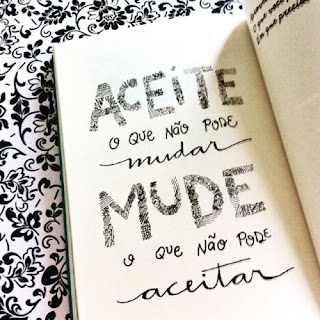 ACEITE
O QUE NÃO PODE
mudar
MUDE
O QUE NÃO PODE
aceitar